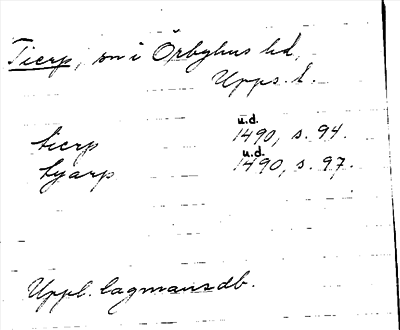 Tierp, sn i Örbyhus hd,
Upps. l.
u.d.
tierp 1490, s. 94.
u.d.
tyarp 1490, s. 97.
Uppl. lagmansdb.